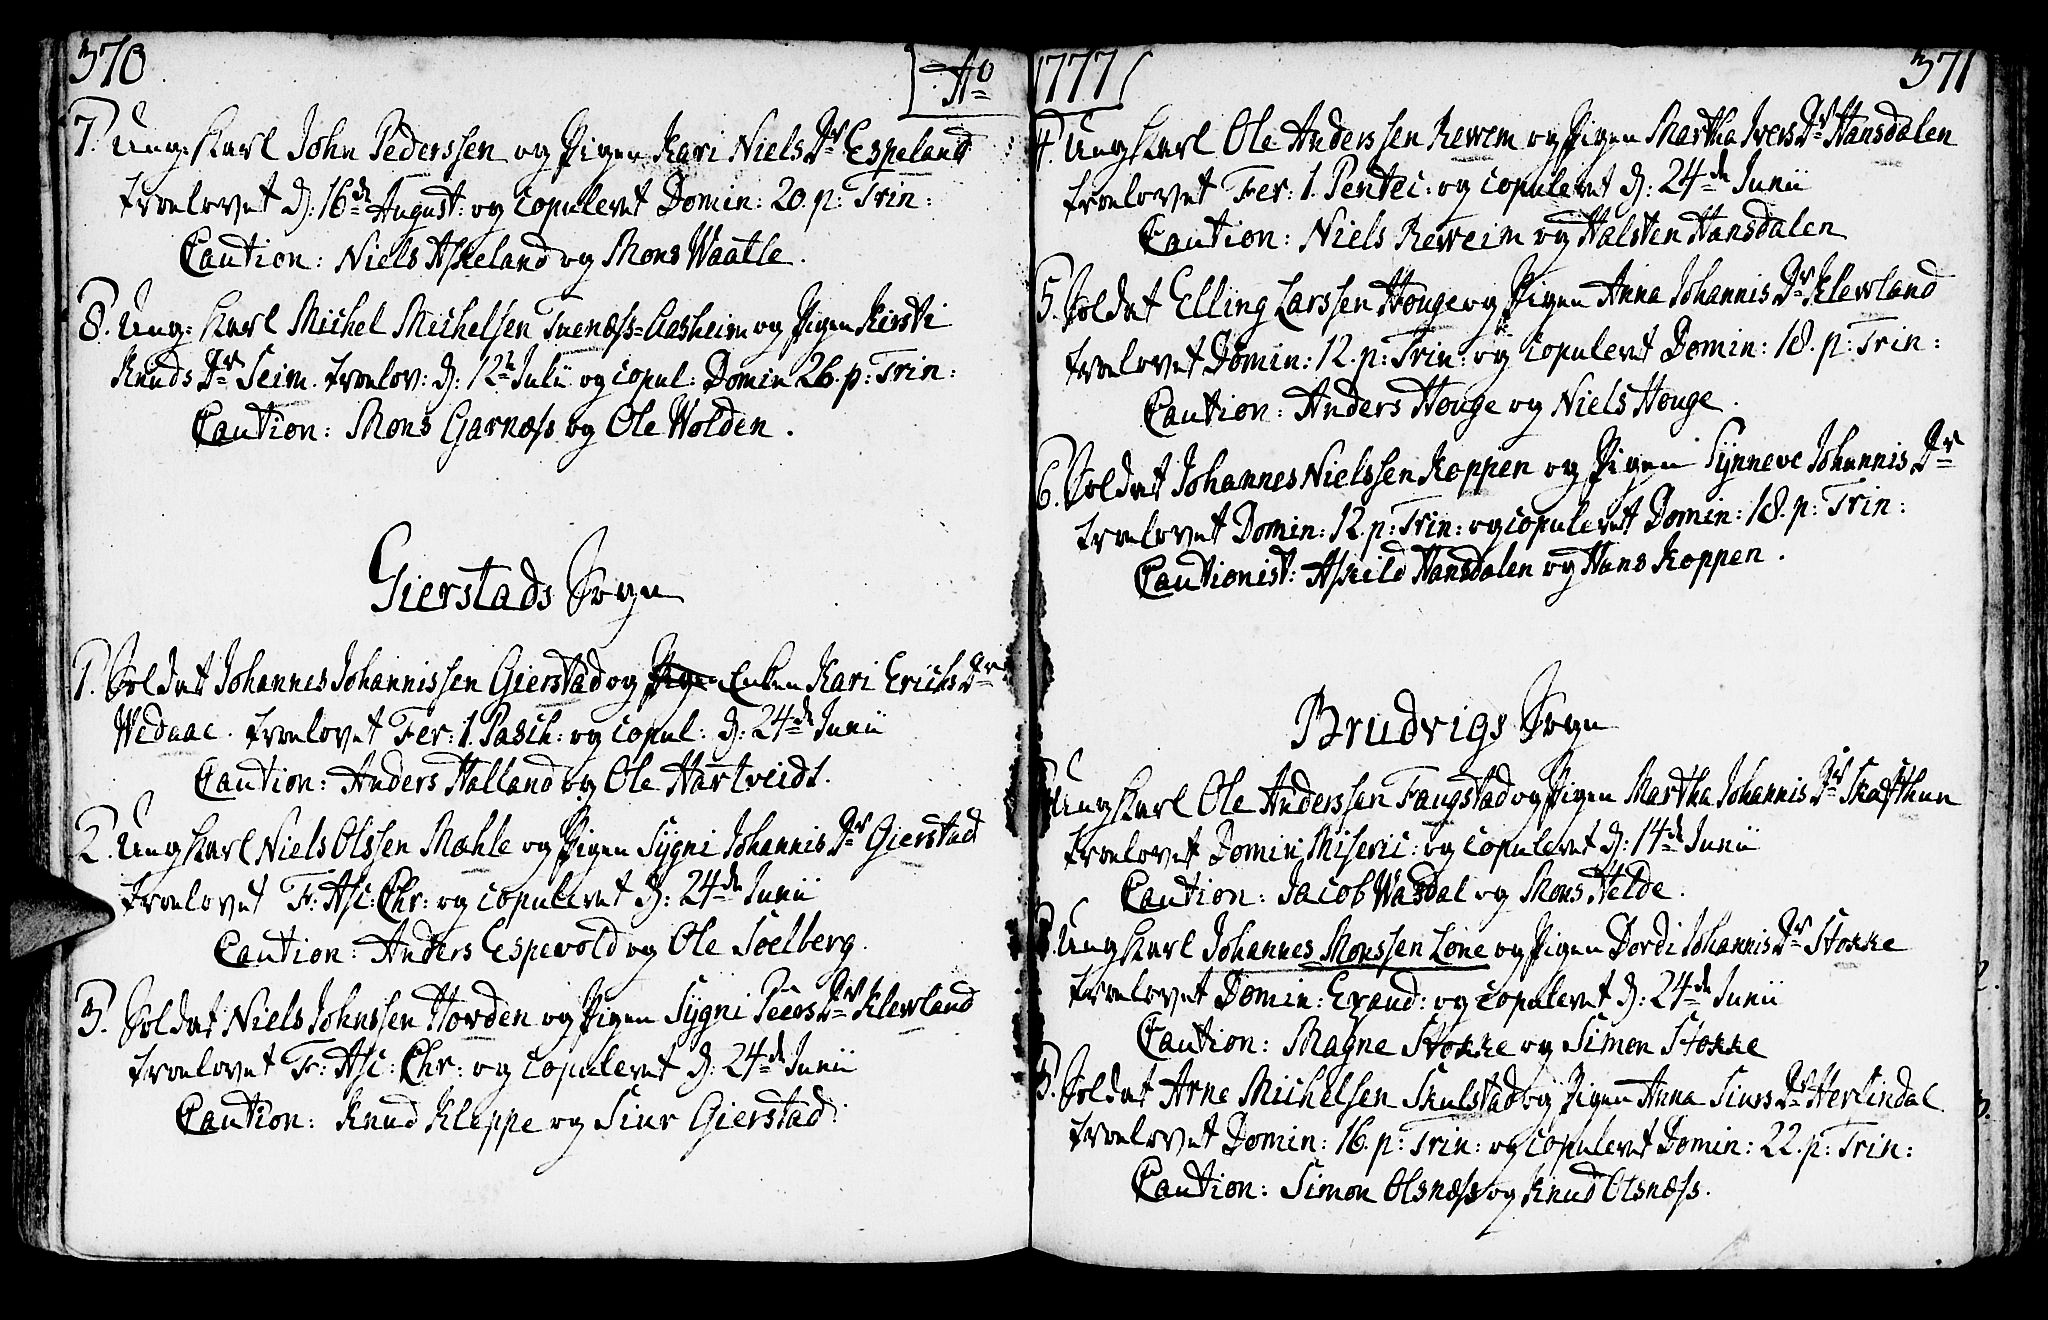 370
Ao
7. Ung: Karl John Pederssen og Pigen Kari Niels Dr Espeland
troelovet d: 16de August: og copuleret Domin: 20. p: Trin:
Caution: Niels Askeland og Mons Waatle.
8. Ung: Karl Michel Michelsen Tuenæss-Aasheim og Pigen Kirsti
Knuds Dr Seim. troelov: d: 12te Julii og copul: Domin 26. p: Trin:
Caution: Mons Garnæss og Ole Wolden.
Gierstads Sogn
1. Soldat Johannes Johannissen Gierstad og Pigen Enken Kari Erichs Dr
Wedaae. troelovet Fer: 1. Pasch: og copul: d: 24de Junii
Caution: Anders Halland og Ole Hartveidt.
2. Ung Karl Niels Olssen Mæhle og Pigen Sygni Johannis Dr Gierstad
troelovet F: Asc: Chr: og copuleret d: 24de Junii
Caution: Anders Espevold og Ole Soelberg.
3. Soldat Niels Johnssen Horden og Pigen Sygni Peers Dr Klewland
troelovet F: Asc: Chr: og copuleret d: 24de Junii
Caution: Knud Kleppe og Siur Gierstad.
1777
371
4. Ung Karl Ole Anderssen Rewem og Pigen Martha Ivers Dr Hansdalen
troelovet Fer: 1. Pentec: og copuleret d: 24de Junii
Caution: Niels Reweim og Halsten Hansdalen
5. Soldat Elling Larssen Houge og Pigen Anna Johannis Dr Klewland
troelovet Domin: 12. p: Trin: og copuleret Domin: 18. p: Trin:
Caution: Anders Houge og Niels Houge.
6. Soldat Johannes Nielssen Koppen og Pigen Synneve Johannis Dr
troelovet Domin: 12 p: Trin: og copuleret Domin: 18. p: Trin:
Cautionist: Askild Hansdalen og Hans Koppen.
Brudvigs Sogn
Ung Karl Ole Anderssen Faugstad og Pigen Martha Johannis Dr Skafthun
troelovet Domin: Miseric: og copuleret d: 14de Junii
Caution: Jacob Wasdal og Mons Helde.
Ung Karl Johannes Monssen Lone og Pigen Dordi Johannis Dr Stokke
troelovet Domin: Exaud: og copuleret d: 24de Junii
Caution: Magne Stokke og Simon Stokke
3. Soldat Arne Michelsen Skulstad og Pigen Anna Siurs Dr Herlindal
troelovet Domin: 16. p: Trin: og copuleret Domin: 22. p: Trin:
Caution: Simon Olsnæss og Knud Olsnæss.